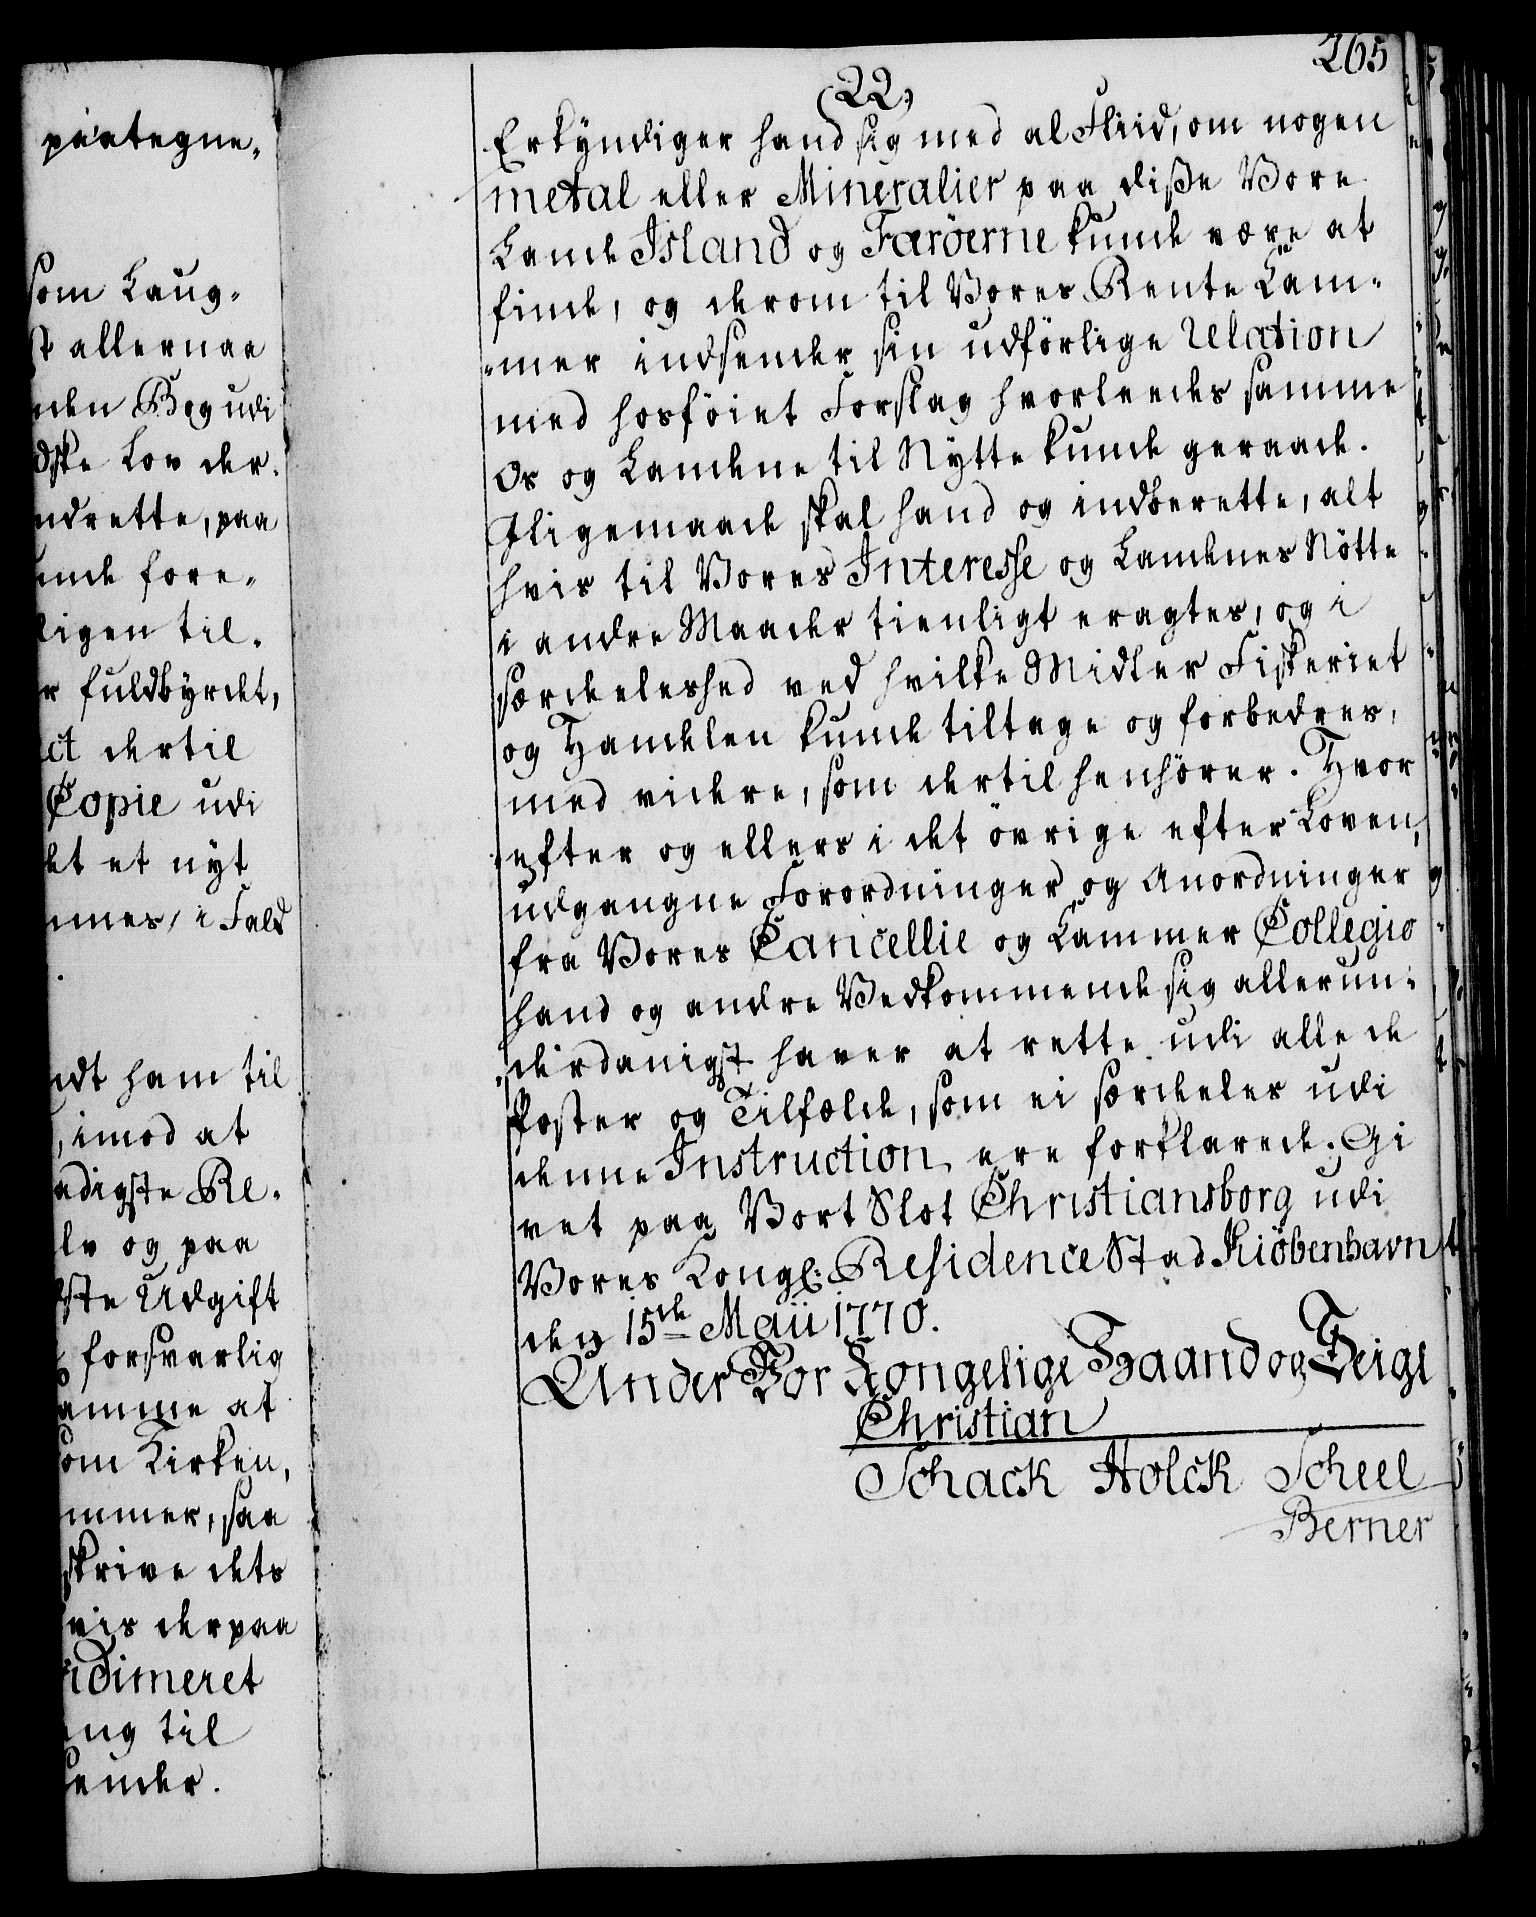 paategne,
som Laug-
allernaa
Bog udi
dske Lov der-
ndrette, paa
fore-
ligen til-
r fuldbyrdet,
ct dertil
Copie udi
et nyt
i Fald
ndt ham til
, imod at
adigste Re-
lv og paa
ste Udgift
forsvarlig
amme at
om Kirken,
mmer, saa
skrive dets
vis derpaa
idimeret
ng til
sender.
265
(22)
Erkyndiger hand sig med al Fliid, om nogen
metal eller Mineralier paa diße Vore
Lande Island og Færöerne kunde være at
finde, og derom til Vores Rente Cam-
-mer indsender sin udförlige relation
med hosföiet Forslag hvorleedes samme
Os og Landene til Nytte kunde geraade.
Iligemaade skal hand og indberette, alt
hvis til Vores Interesse og Landenes Nötte
i andre Maader tienligt eragtes, og i
særdeleshed ved hvilke Midler Fiskeriet
og Handelen kunde tiltage og forbedres,
med videre, som dertil henhörer. Hvor
-efter og ellers i det övrige efter Loven,
udgangne Forordninger og Anordninger
fra Vores Cancellie og Cammer Collegio
hand og andre Vedkommende sig allerun-
-derdanigst haver at rette udi alle de
Poster og Tilfælde, som ei særdeles udi
denne Instruction ere forklarede. Gi
vet paa Vort Slot Christiansborg udi
Vores Kongl: Residence Stad Kiöbenhavn
den 15de Maii 1770.
Under Vor Kongelige Haand og Zeigl
Christian
Schack Holck Scheel
Berner